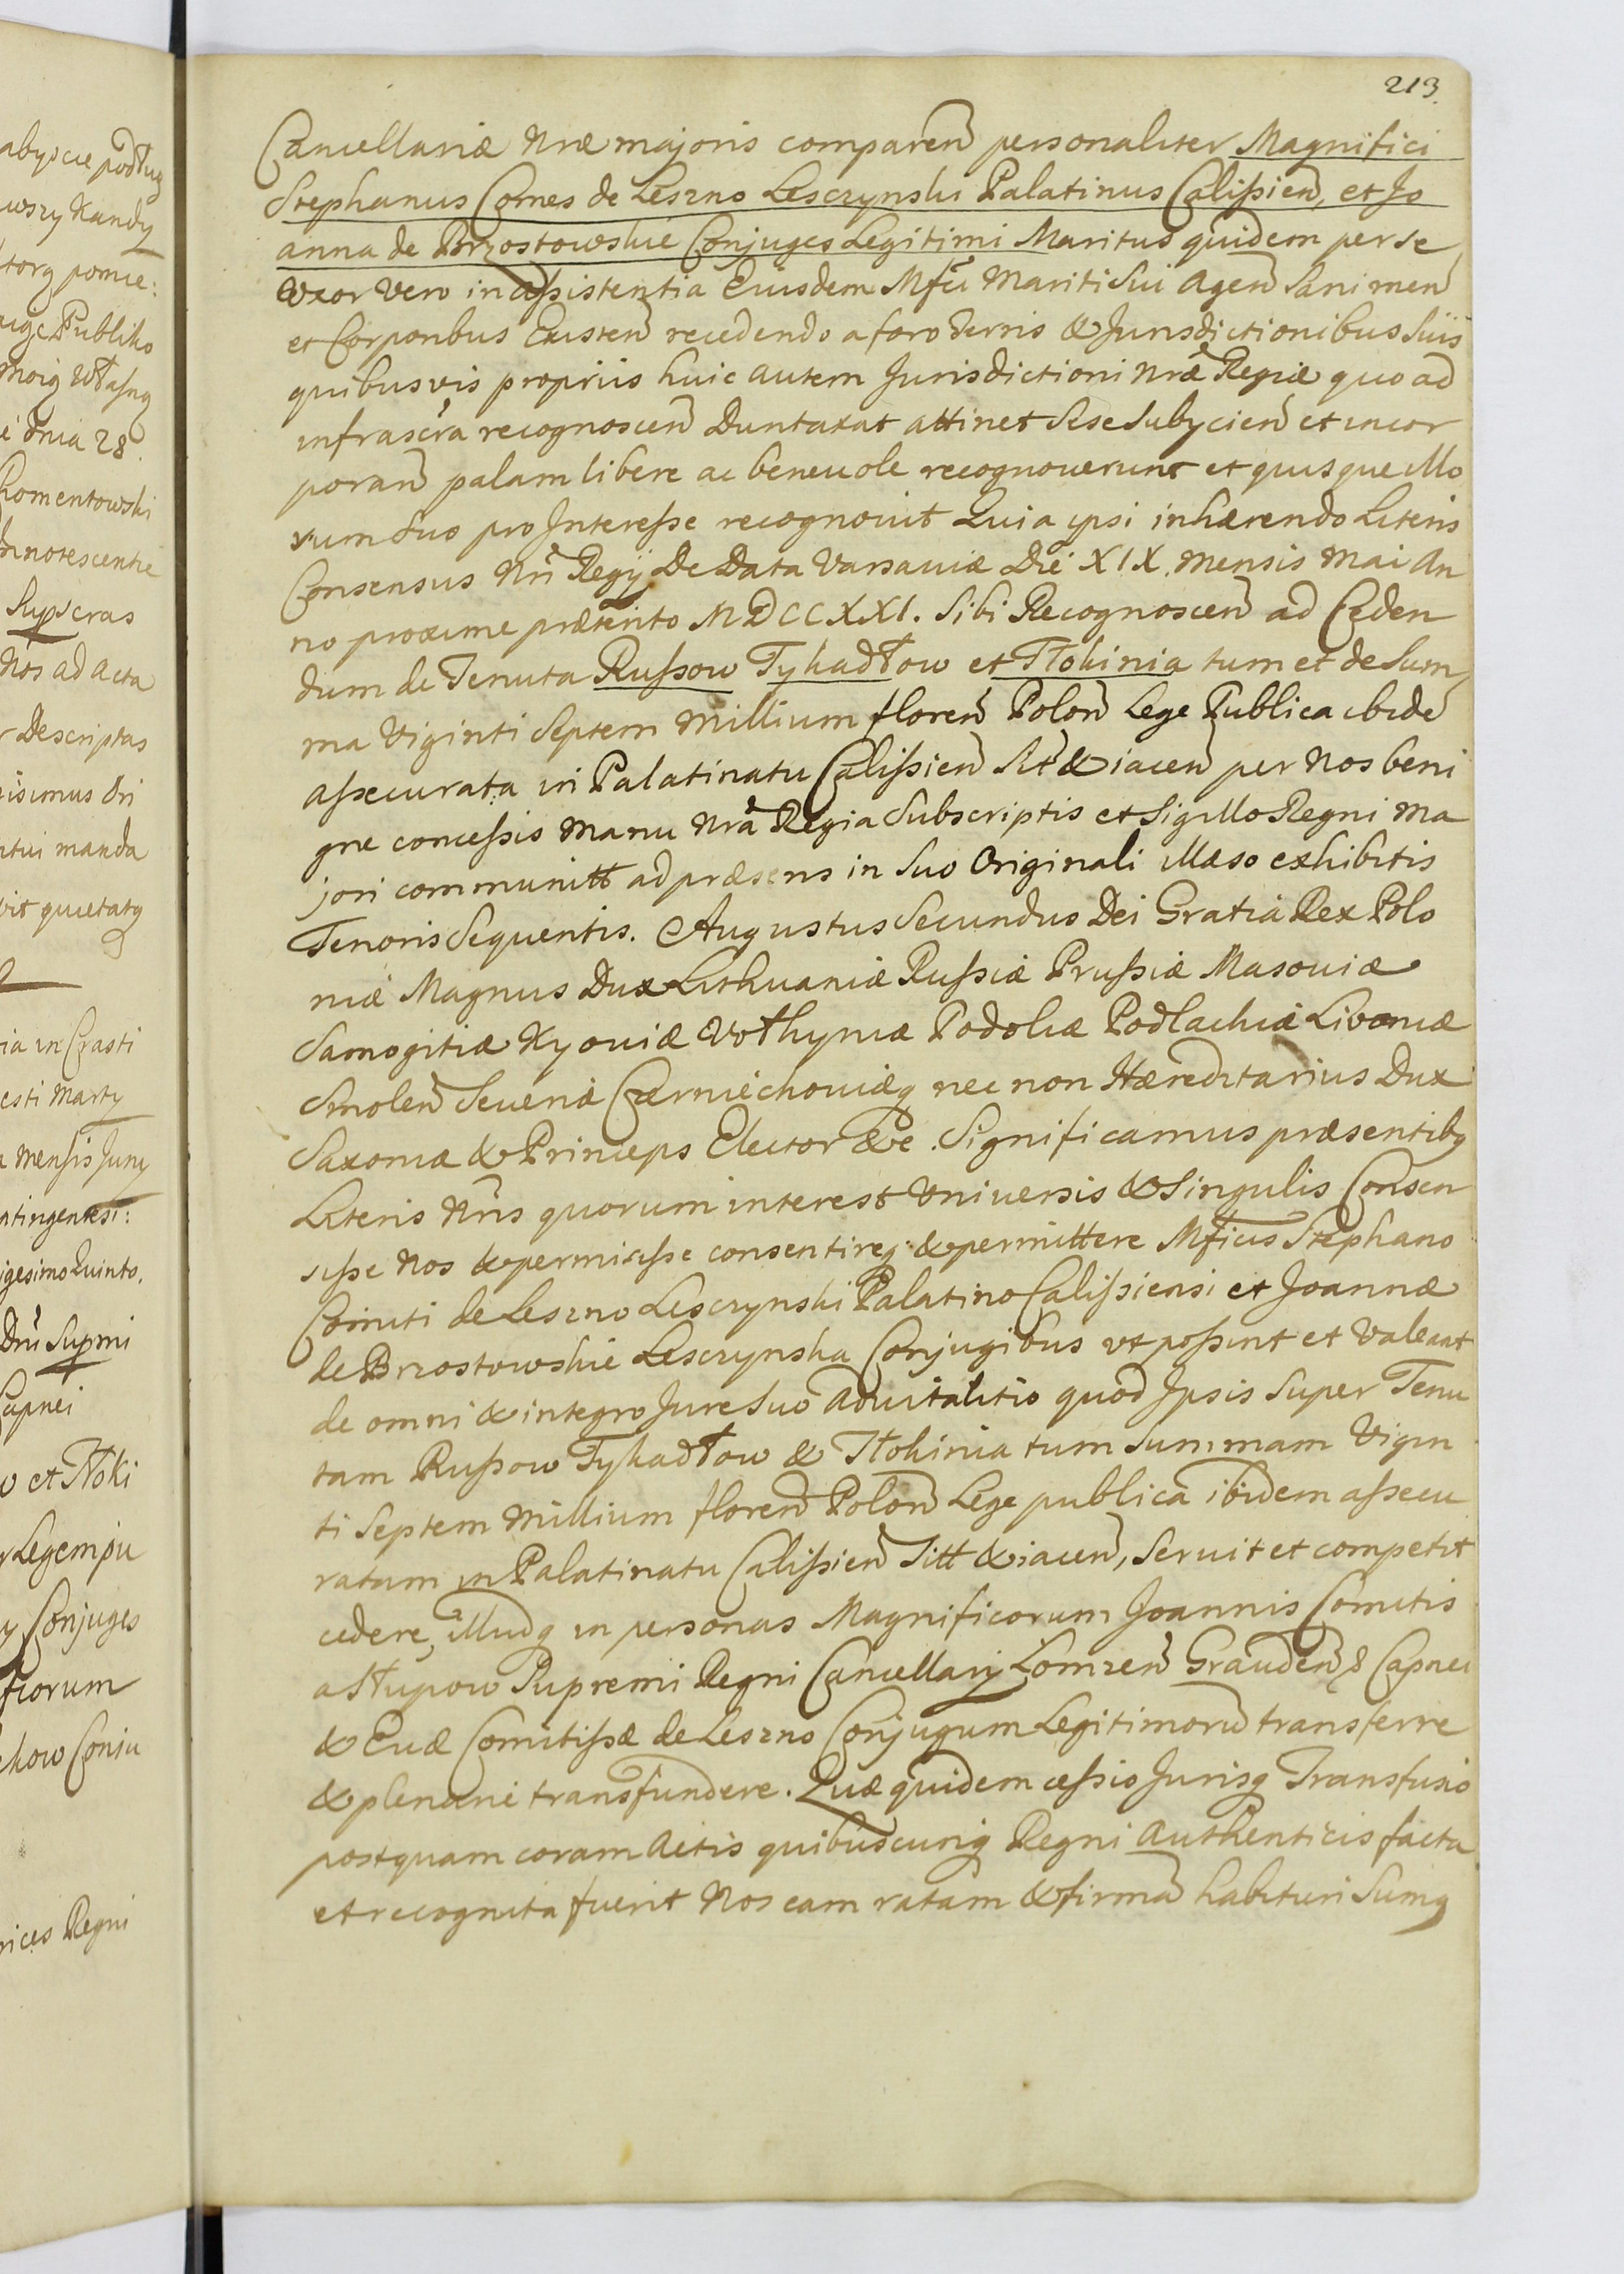 abyscie podług
wszy Kandy
torg pomie:
Publiko
moią Własną
dnia 28.
homentowski
nnotescentie
Supscras
Nos ad acta
Descriptas
isimus Dri
ntui manda
vit quietatq
ia in Crasti
esti Marty
mensis Juny
atingentesi:
igesimo Quinto.
Dni Supmi
Capnei
et Tłoki
Legem pu
Conjuges
ficorum
how Conju
rices Regni
213.
Cancellariæ Nræ majoris comparen personaliter Magnifici
Stephanus Comes de Leszno Lesczynski Palatinus Calissien, et Jo
anna de Brzostowskie Conjuges Legitimi Maritus quidem per se
Uxor Vero in assistentia Eiusdem Mfci Mariti Sui Agen Sani men
et Corporibus Existen recedendo a foro Terris & Jurisdictionibus Suis
quibusvis propriis huic autem Jurisdictioni Nræ Regiæ quo ad
infrascra recognoscen Duntaxat attinet Sese Subycien et incor
poran palam libere ac beneuole recognouerunt et quisque illo
rum Suo pro Interesse recognouit Quia ipsi inhærendo Literis
Consensus Nri Regij De Data Varsaviæ Die XIX. Mensis Mai An
no proxime præterito MDCCXXI. Sibi Recognoscen ad Ceden
dum de Tenuta Russow Tykadłow et Tłokinia tum et de Sum
ma Viginti Septem Millium floren Polon Lege Publica ibide
assecurata in Palatinatu Calissien Sit & iacen per Nos beni
gne concessis Manu Nra Regia Subscriptis et Sigillo Regni Ma
jori communitt ad præsens in Suo Originali illæso exhibitis
Tenoris Sequentis. Augustus Secundus Dei Gratia Rex Polo
niæ Magnus Dux Lithuaniæ Russiæ Prussiæ Masouiæ
Samogitiæ Kyouiæ Vołhyniæ Podoliæ Podlachiæ Livoniæ
Smolen Seueriæ Czerniechouiæq nec non Hæreditarius Dux
Saxoniæ & Princeps Elector &c. Significamus præsentibq
Literis Nris quorum interest Vniuersis & Singulis Consen
sisse Nos & permisisse consentireq & permittere Mficis Stephano
Comiti de Leszno Lesczynski Palatino Calissiensi et Joannæ
de Brzostowskie Lesczynska Conjugibus ut possint et Valeant
de omni & integro Jure Suo Aduitalitio quod Ipsis Super Tenu
tam Russow Tykadłow & Tłokinia tum Summam Vigin
ti Septem Millium floren Polon Lege publica ibidem assecu
ratam in Palatinatu Calissien Sitt & iacen, Seruit et competit
cedere, illudq in personas Magnificorum Joannis Comitis
a Słupow Supremi Regni Cancellarij Lomzen Grauden & Capnei
& Euæ Comitissæ de Leszno Conjugum Legitimoru transferre
& plenarie transfundere. Quæ quidem cessio Jurisq Transfusio
postquam coram Actis quibuscunq Regni Authenticis facta
et recognita fuerit Nos eam ratam & firma habituri Sumq